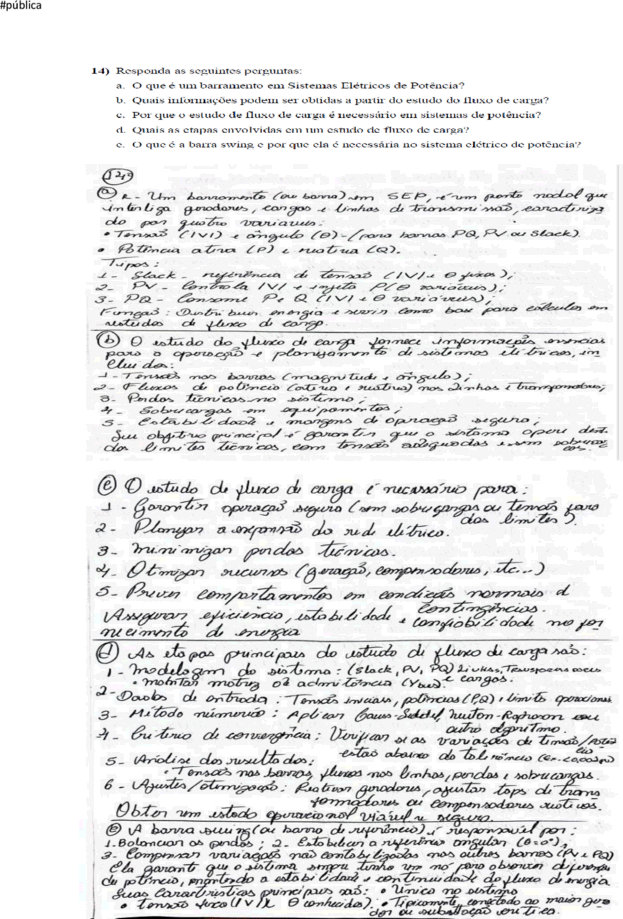 #pública
14) Responda as seguintes perguntas:
a. O que é um barramento em Sistemas Elétricos de Potência?
b. Quais informações podem ser obtidas a partir do estudo do fluxo de carga?
c. Por que o estudo de fluxo de carga é necessário em sistemas de potência?
d. Quais as etapas envolvidas em um estudo de fluxo de carga?
e. O que é a barra swing e por que ela é necessária no sistema elétrico de potência?
a R - Um barramento (ou barra) em SEP, é um ponto nodal que
interliga geradores, cargas e linhas de transmissão, caracteriza
do por quatro variáveis:
• Tensão (|V|) e ângulo (θ) - (para barras PQ, PV ou Slack).
• Potência ativa (P) e reativa (Q).
Tipos:
1 - Slack - referência de tensão (|V| e θ fixos);
2 - PV - Controla |V| e injeta P (θ variáveis);
3 - PQ - Consome P e Q (|V| e θ variáveis);
Função: Distribuir energia e servir como base para cálculos em
estudos de fluxo de carga.
b O estudo do fluxo de carga fornece informações essenciais
para a operação e planejamento de sistemas elétricos, in
cluídos:
1 - Tensões nas barras (magnitude e ângulo);
2 - Fluxos de potência (ativa e reativa) nos Linhas e transformadores;
3 - Perdas técnicas no sistema;
4 - Sobrecargas em equipamentos;
5 - Estabilidade e margens de operação segura;
Seu objetivo principal é garantir que o sistema opere dent
dos limites técnicos, com tensão adequadas e sem sobrecar
c O estudo de fluxo de carga é necessário para:
1 - Garantir operação segura (sem sobrecargas ou tensões fora
dos limites).
2 - Planejar a expansão da rede elétrica.
3 - minimizar perdas técnicas.
4 - Otimizar recursos (geração, compensadores, etc...)
5 - Prever comportamentos em condição normais d
contingências.
Assegurar eficiência, estabilidade e confiabilidade no for
necimento de energia
d As etapas principais do estudo de fluxo de carga são:
1 - modelagem do sistema: (Slack, PV, PQ) Linhas, Transformadores
• montar matriz de admitância (Ybus) e cargas.
2 - Dados de entrada: Tensões iniciais, potências (P,Q) e limites operacionais
3 - Método numérico: Aplicar Gauss-Seidel, Newton-Raphson ou
outro algoritmo.
4 - Critério de convergência: Verificar se as variações de tensão/potên
cia
estão abaixo da tolerância
5 - Análise dos resultados:
• Tensões nas barras, fluxos nos linhas, perdas e sobrecargas.
6 - Ajustes/otimização: Reativar geradores, ajustar taps de trans
formadores ou compensadores reativos.
Obter um estado operacional viável e seguro.
e A barra swing (ou barra de referência) é responsável por:
1. Balancear as perdas; 2 - Estabelecer a referência angular (θ=0°);
3 - Compensar variações não contabilizadas nas outras barras (PV e PQ)
Ela garante que o sistema sempre tenha um nó para absorver diferenças
de potência, mantendo a estabilidade e continuidade do fluxo de energia
Suas Características principais são: • Único no sistema
• tensão fixa (|V| e θ conhecidos). • Tipicamente, conectado ao maior gera
dor ou subestação crítica.